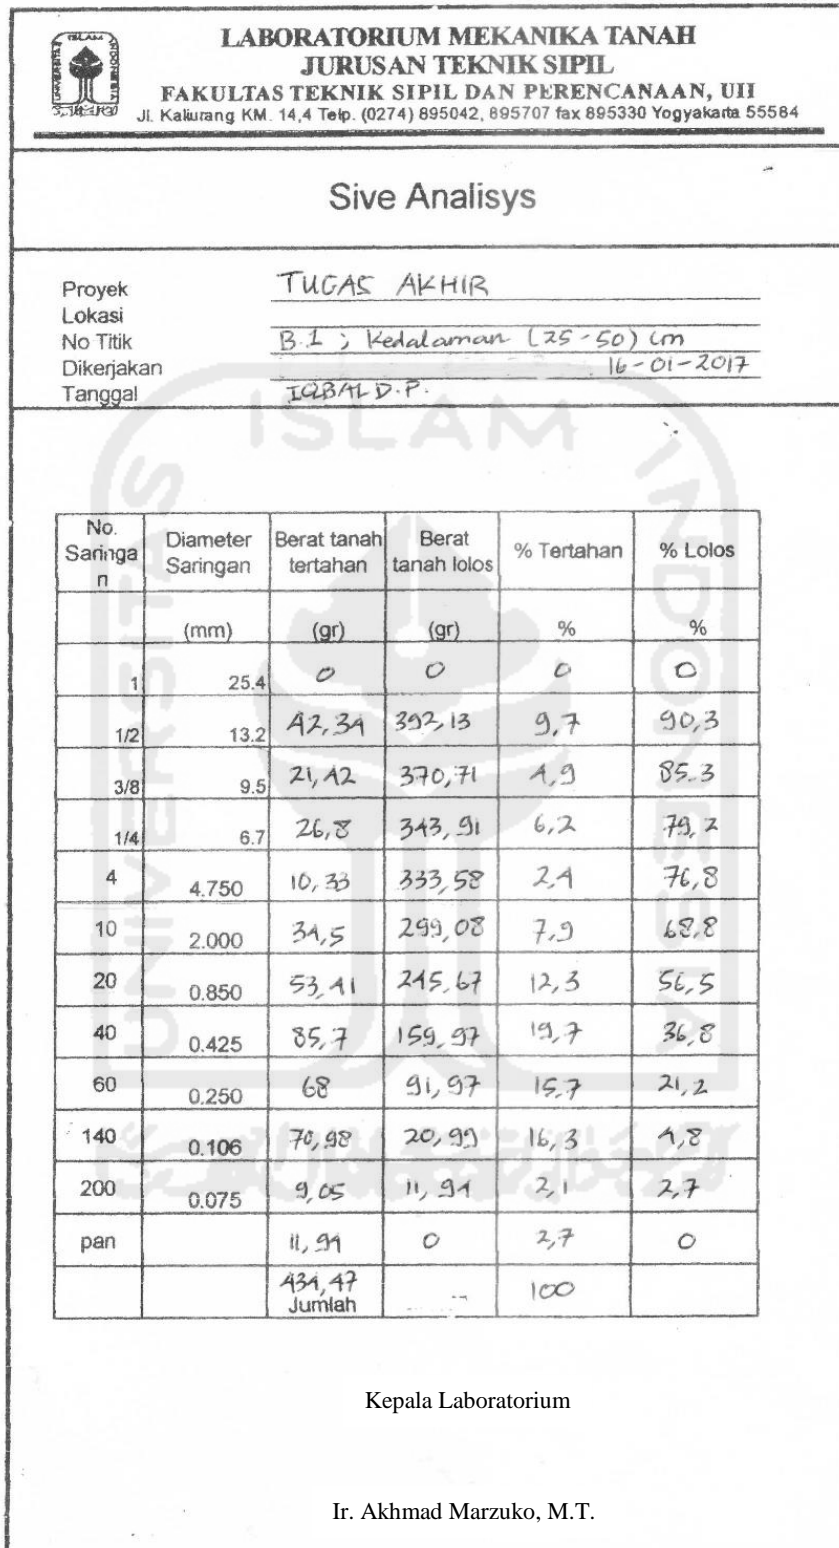 ISLAM
UNIVERSITAS
INDONESIA
LABORATORIUM MEKANIKA TANAH
JURUSAN TEKNIK SIPIL
FAKULTAS TEKNIK SIPIL DAN PERENCANAAN, UII
Jl. Kaliurang KM. 14,4 Telp. (0274) 895042, 895707 fax 895330 Yogyakarta 55584
Sive Analisys
Proyek TUGAS AKHIR
Lokasi
No Titik B.1 ; Kedalaman (25-50) cm
Dikerjakan 16-01-2017
Tanggal IQBAL D.P.
ISLAM
UNIVERSITAS
INDONESIA
No. Saringan Diameter Saringan Berat tanah tertahan Berat tanah lolos % Tertahan % Lolos
(mm) (gr) (gr) % %
1 25.4 0 0 0 0
1/2 13.2 42,34 392,13 9,7 90,3
3/8 9.5 21,42 370,71 4,9 85.3
1/4 6.7 26,8 343,91 6,2 79,2
4 4.750 10,33 333,58 2,4 76,8
10 2.000 34,5 299,08 7,9 68,8
20 0.850 53,41 245,67 12,3 56,5
40 0.425 85,7 159,97 19,7 36,8
60 0.250 68 91,97 15,7 21,2
140 0.106 70,98 20,99 16,3 4,8
200 0.075 9,05 11,94 2,1 2,7
pan 11,94 0 2,7 0
434,47 100
Jumlah
Kepala Laboratorium
Ir. Akhmad Marzuko, M.T.